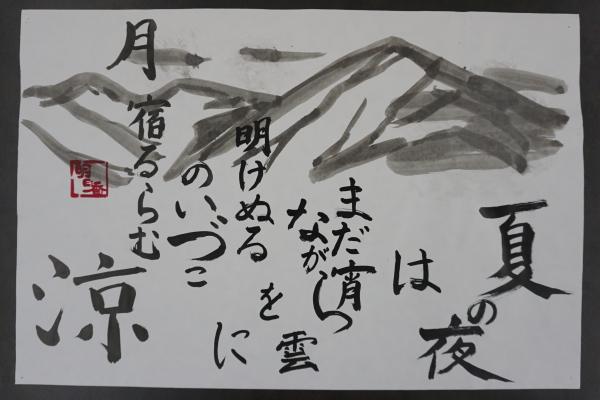 夏の夜
は
まだ宵
ながら
明けぬる
を
雲
のいづこ
に
月
宿るらむ
涼